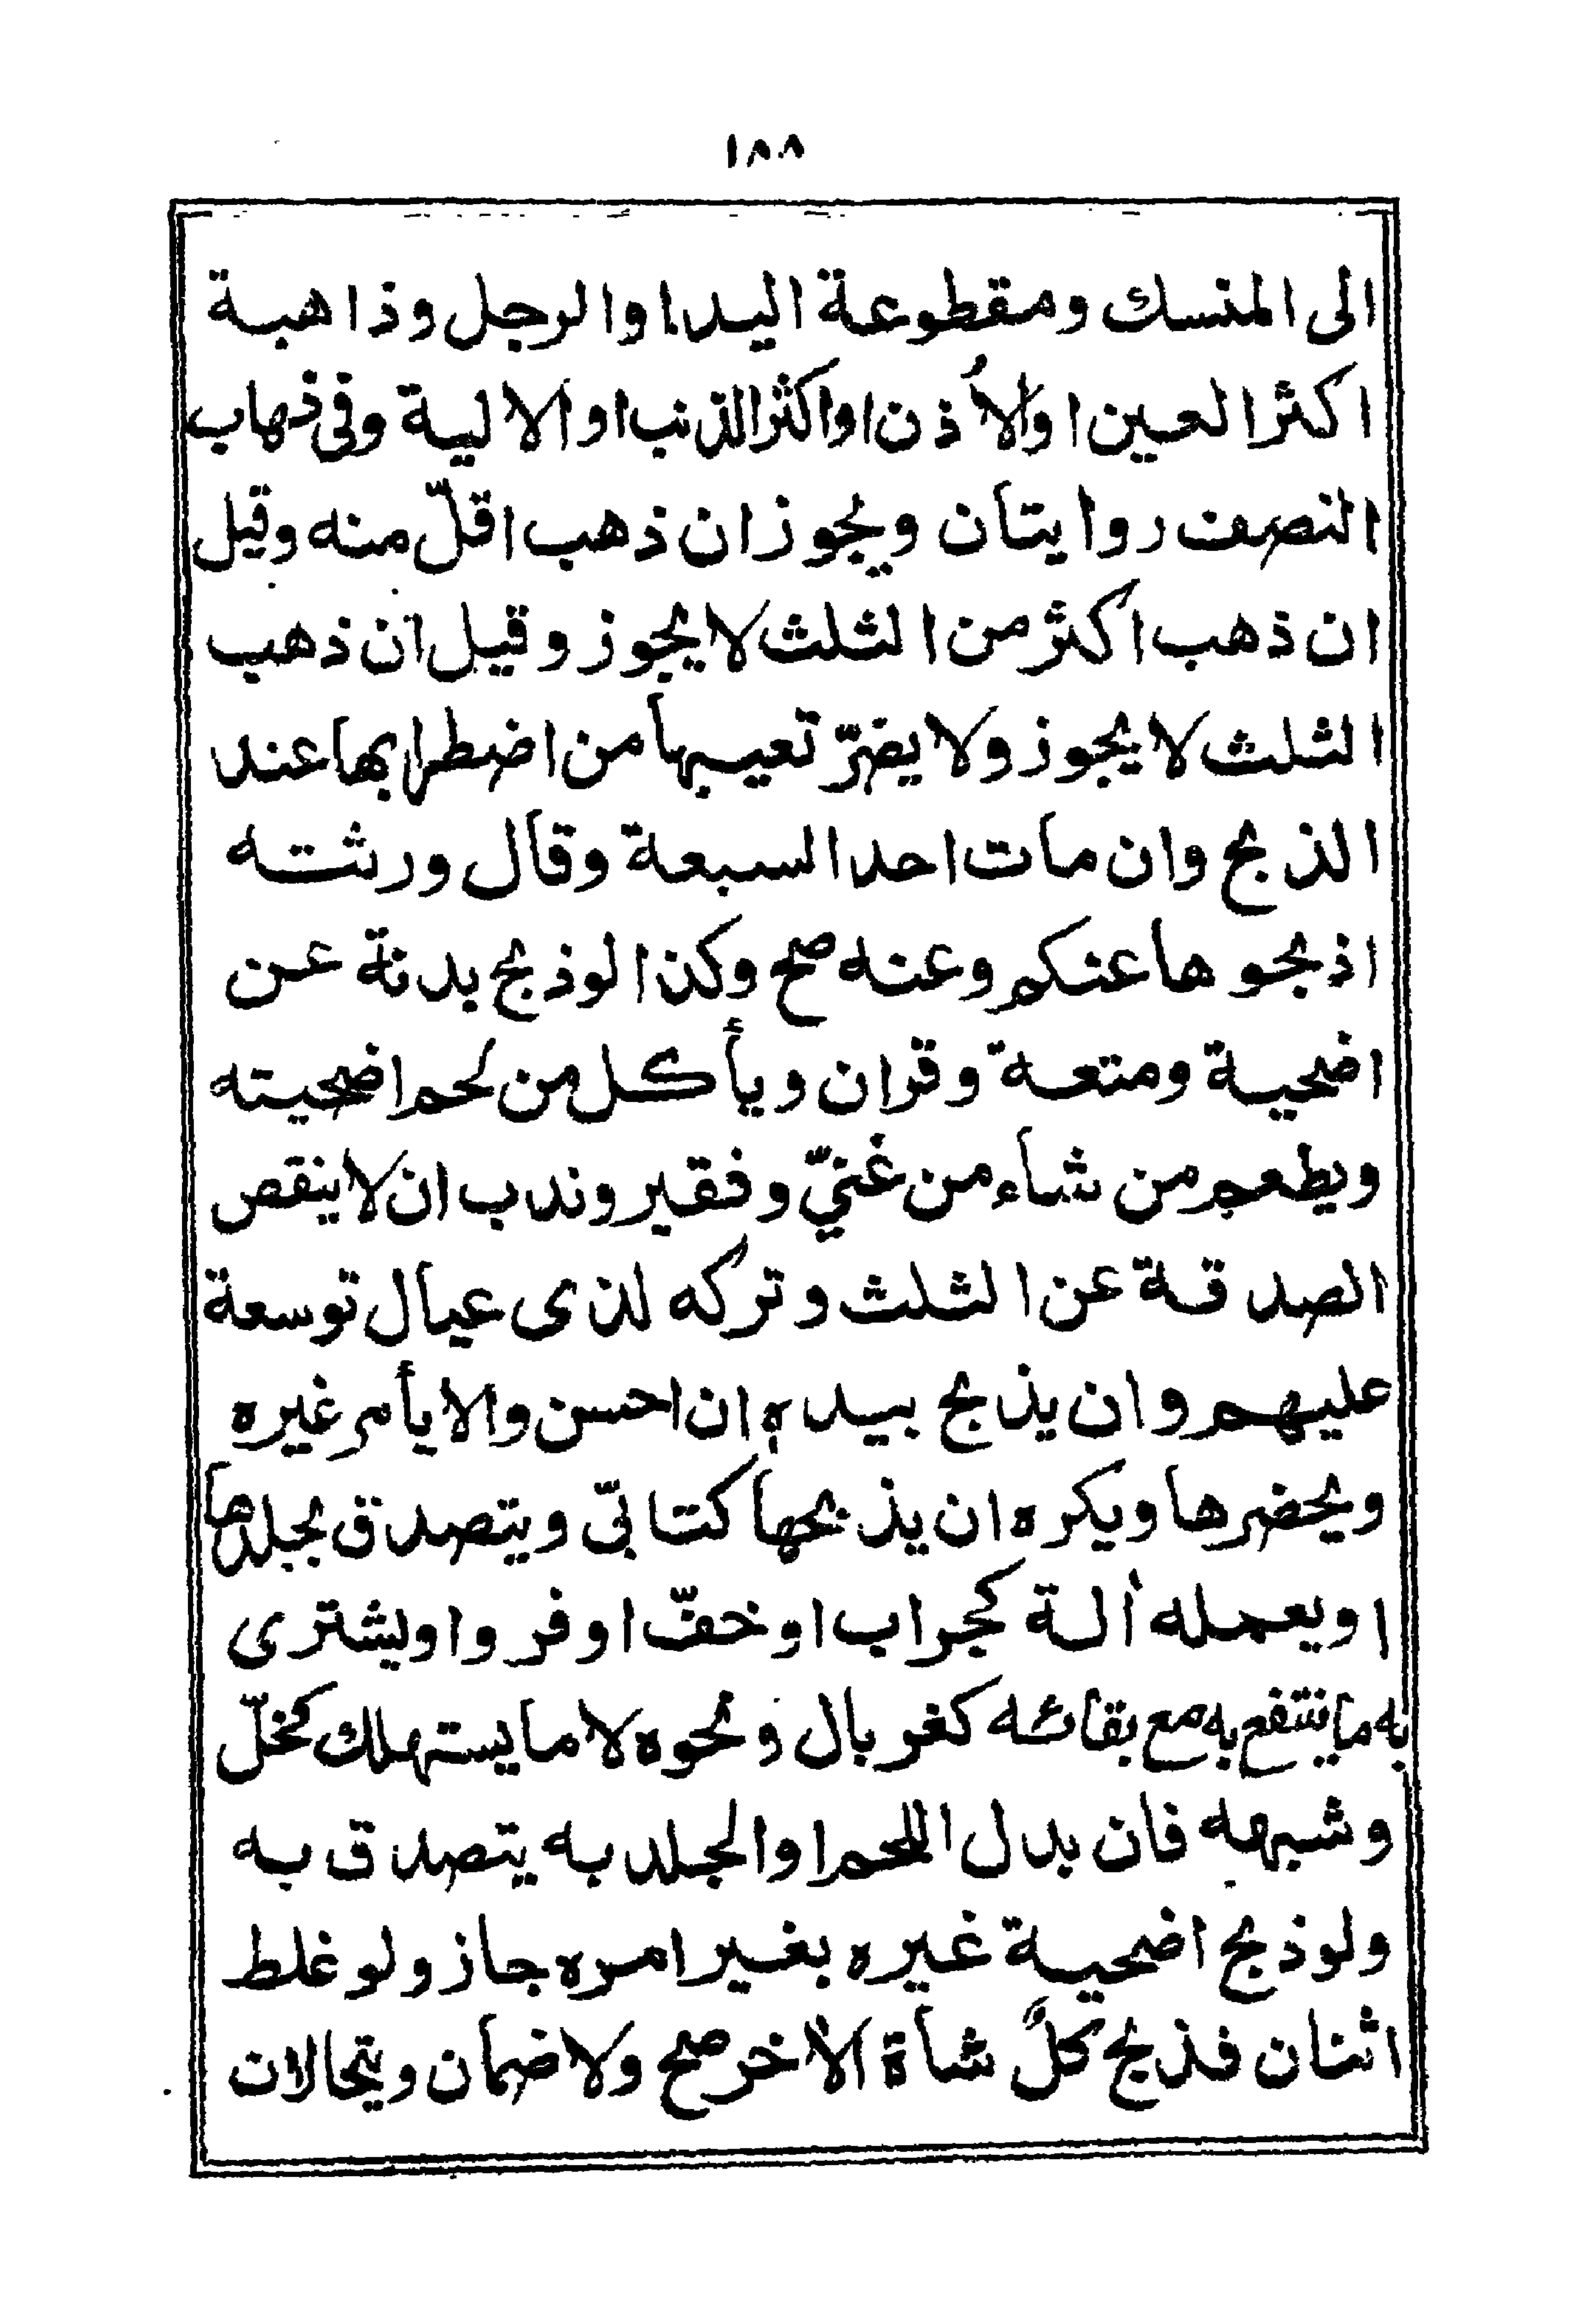 ١٨٨
الى المنسك ومقطوعة اليد او الرجل وذاهبة
اكثر العين او الأُذن او اكثر الذنب او الالية وفى ذهاب
النصف روايتان ويجوز ان ذهب اقلّ منه وقيل
ان ذهب اكثر من الثلث لا يجوز وقيل ان ذهب
الثلث لا يجوز ولا يضرّ تعيبها من اضطرابها عند
الذبح وان مات احد السبعة وقال ورثته
اذبحوها عنكم وعنه صح وكذا لو ذبح بدنة عن
اضحية ومتعة وقران ويأكل من لحم اضحيته
ويطعم من شاء من غنيّ وفقير وندب ان لا ينقص
الصدقة عن الثلث وتركه لذى عيال توسعة
عليهم وان يذبح بيده ان احسن والا يأمر غيره
ويحضرها ويكره ان يذبحها كتابىّ ويتصدق بجلدها
او يعمله ألة كجراب او خفّ او فرو او يشترى
به ما ينتفع به مع بقائه كغربال ونحوه لا ما يستهلك كخلّ
وشبهه فان بدل اللحم او الجلد به يتصدق به
ولو ذبح اضحية غيره بغير امره جاز ولو غلط
اثنان فذبح كلّ شاة الأخر صح ولا ضمان ويتحالان